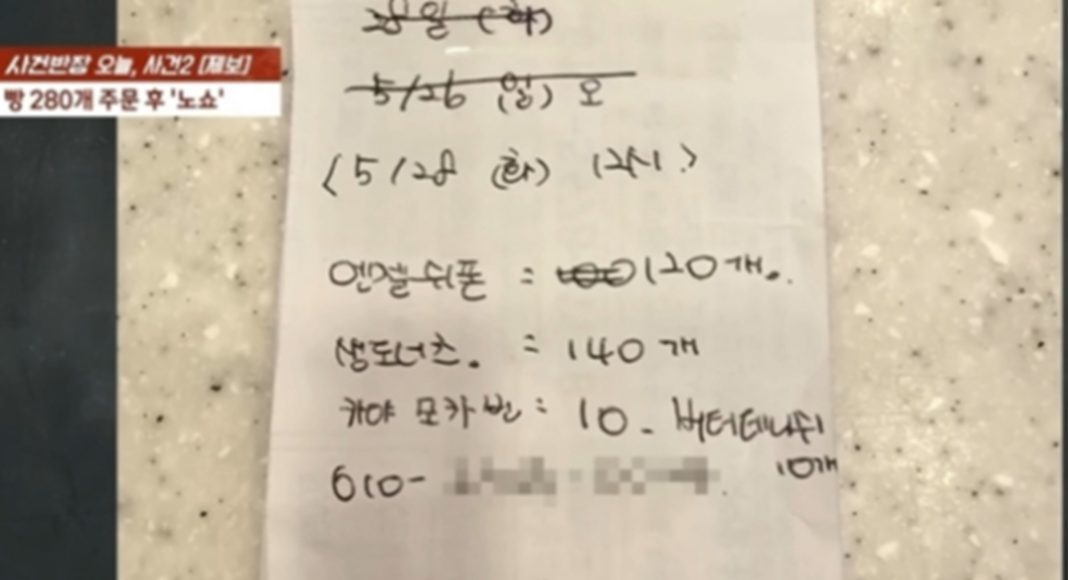 사건반장 오늘, 사건2 [제보]
빵 280개 주문 후 '노쇼'
28일 (화)
5/26 (일) 오
<5/28 (화) 12시>
엔젤쉬폰 = 100 120개.
생도너츠. = 140개
카야 모카번 = 10 - 버터데니쉬
10개
010-